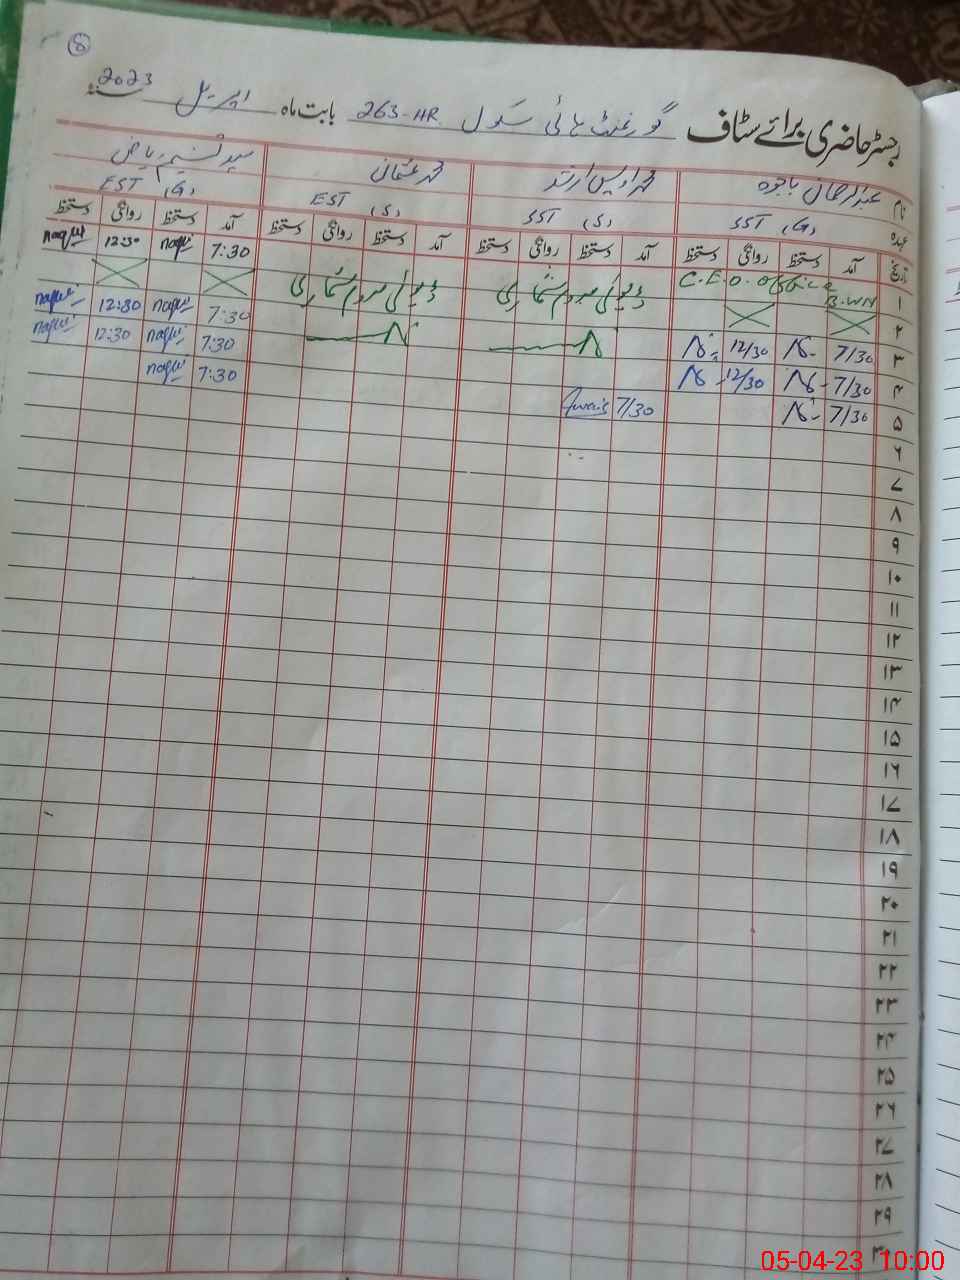 8
رجسٹر حاضری برائے سٹاف گورنمنٹ ہائی سکول 263-HR بابت ماہ اپریل سنہ 2023
نام عبدالرحمان باجوہ محمد اویس ارشد محمد عثمان سید تسنیم ریاض
عہدہ SST (G) SST (S) EST (S) EST (G)
تاریخ آمد دستخط روانگی دستخط آمد دستخط روانگی دستخط آمد دستخط روانگی دستخط آمد دستخط روانگی دستخط
۱ C.E.O. office B.WN ڈیوٹی مردم شماری ڈیوٹی مردم شماری 7:30 naqvi 12:30 naqvi
۲
۳ 7/30 12/30 7:30 naqvi 12:30 naqvi
۴ 7/30 12/30 7:30 naqvi 12:30 naqvi
۵ 7/30 7/30 Awais 7:30 naqvi
۶
۷
۸
۹
۱۰
۱۱
۱۲
۱۳
۱۴
۱۵
۱۶
۱۷
۱۸
۱۹
۲۰
۲۱
۲۲
۲۳
۲۴
۲۵
۲۶
۲۷
۲۸
۲۹
۳۰
05-04-23 10:00